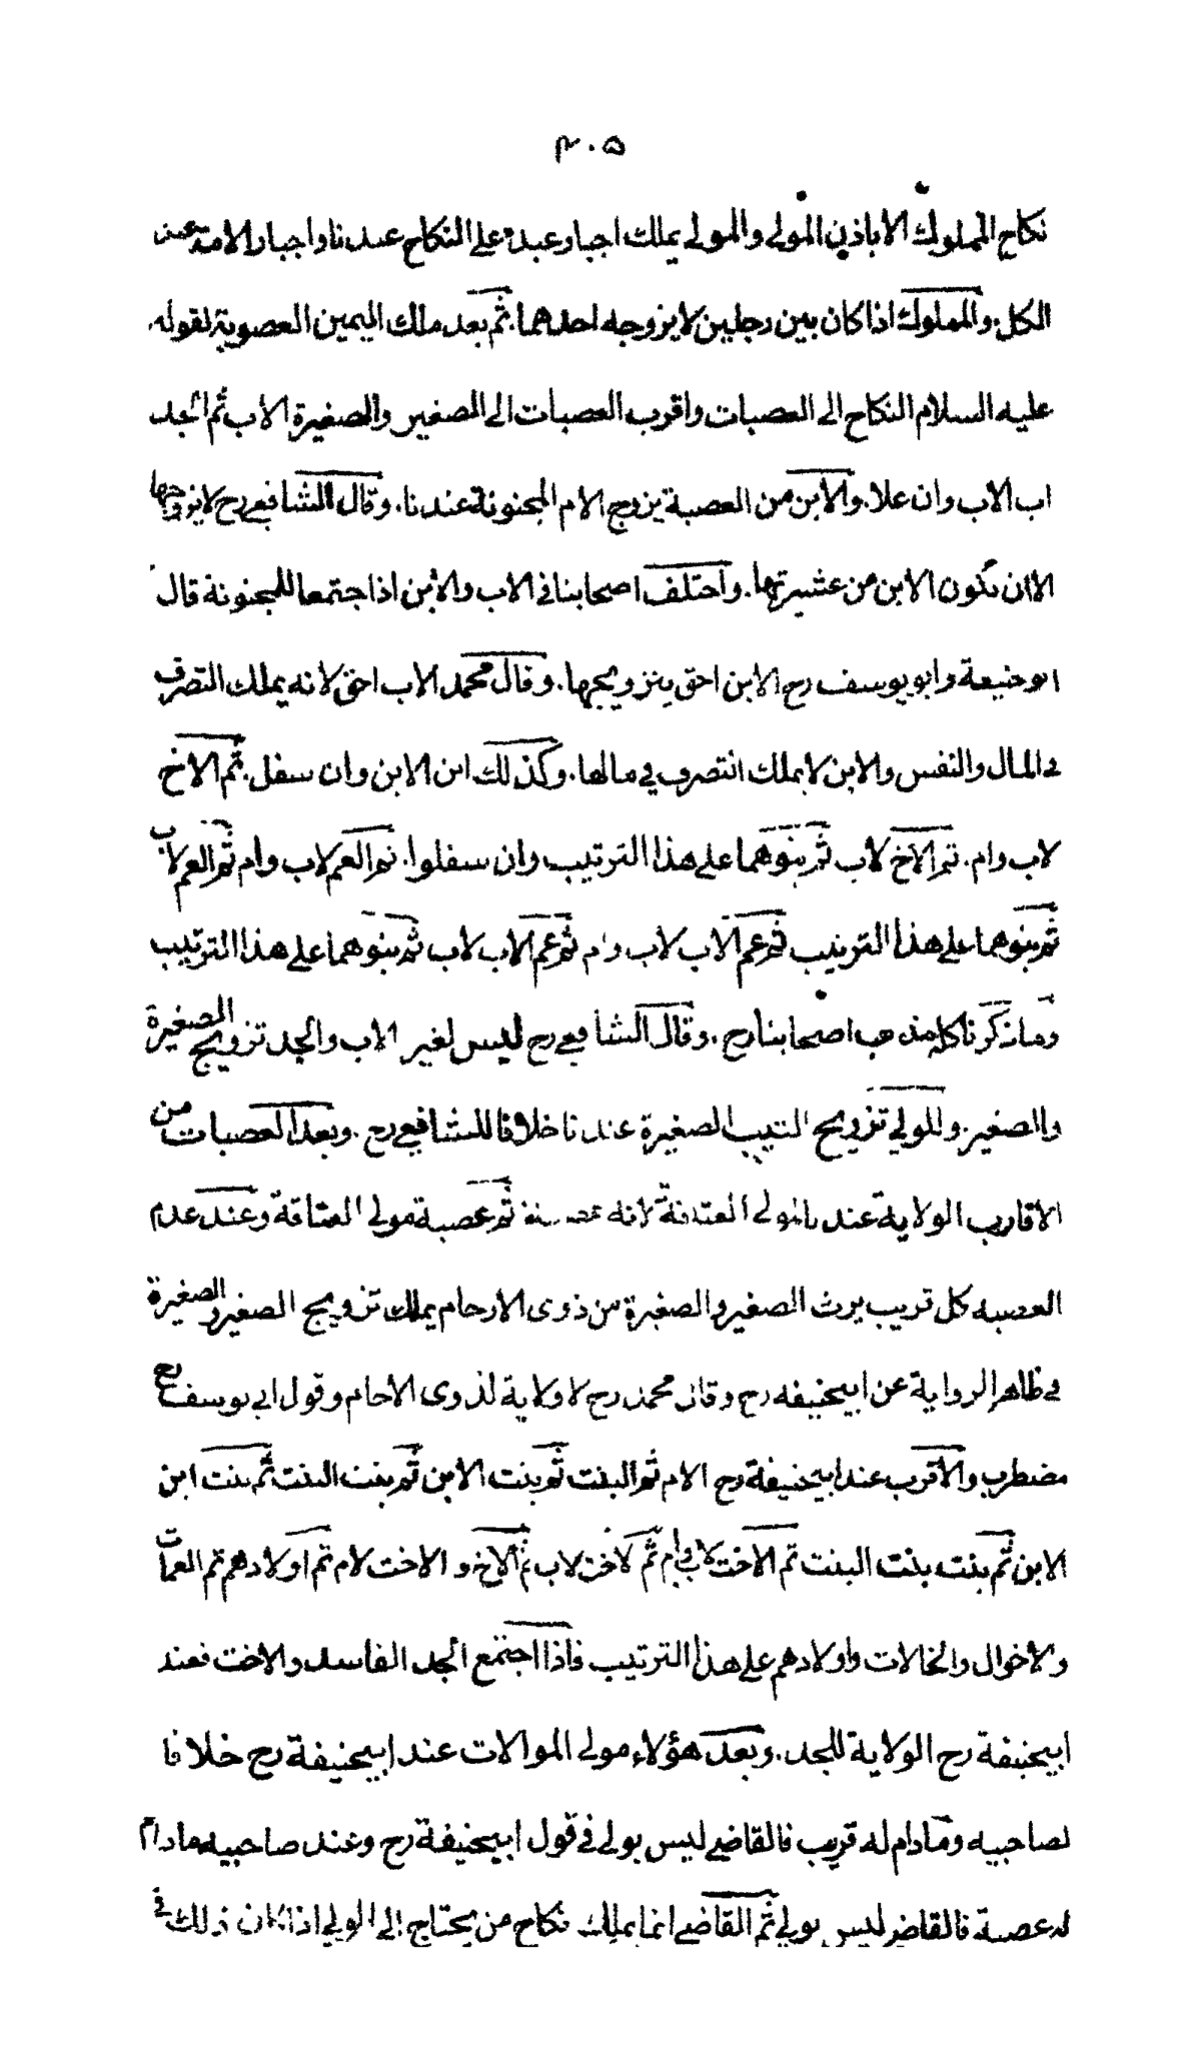 ٣٠٥
نكاح المملوك الا باذن المولى والمولى يملك اجبار عبده على النكاح عندنا واجبار الامة عند
الكل. والمملوك اذا كان بين رجلين لا يزوجه احدهما. ثم بعد ملك اليمين العصوبة لقوله
عليه السلام النكاح الى العصبات واقرب العصبات الى الصغير والصغيرة الاب ثم الجد
اب الاب وان علا. والابن من العصبة يزوج الام المجنونة عندنا. وقال الشافعي رح لا يزوجها
الا ان تكون الابن من عشيرتها. واختلف اصحابنا في الاب والابن اذا اجتمعا للمجنونة قال
ابو حنيفة وابو يوسف رح الابن احق بتزويجها. وقال محمد الاب احق لانه يملك التصرف
في المال والنفس والابن لا يملك التصرف في مالها. وكذلك ابن الابن وان سفل. ثم الاخ
لاب وام. ثم الاخ لاب ثم بنوهما على هذا الترتيب وان سفلوا. ثم العم لاب وام ثم العم لاب
ثم بنوهما على هذا الترتيب ثم عم الاب لاب وام ثم عم الاب لاب ثم بنوهما على هذا الترتيب
وما ذكرنا كله مذهب اصحابنا رح. وقال الشافعي رح ليس لغير الاب والجد تزويج الصغيرة
والصغير. وللولي تزويج الثيب الصغيرة عندنا خلافا للشافعي رح. وبعد العصبات من
الاقارب الولاية عندنا لمولى العتاقة لانه عصبة ثم عصبة مولى العتاقة وعند عدم
العصبه كل قريب يرث الصغير والصغيرة من ذوى الارحام يملك تزويج الصغير والصغيرة
في ظاهر الرواية عن ابيحنيفه رح وقال محمد رح لا ولاية لذوى الاحام وقول ابي يوسف رح
مضطرب والاقرب عند ابيحنيفة رح الام ثم البنت ثم بنت الابن ثم بنت البنت ثم بنت ابن
الابن ثم بنت بنت البنت ثم الاخت لاب وام ثم لاخت لاب ثم الاخ و الاخت لام ثم اولادهم ثم العمات
والاخوال والخالات واولادهم على هذا الترتيب فاذا اجتمع الجد الفاسد والاخت فعند
ابيحنيفة رح الولاية للجد. وبعد هؤلاء مولى الموالات عند ابيحنيفة رح خلافا
لصاحبيه وما دام له قريب فالقاضي ليس بولى في قول ابيحنيفة رح وعند صاحبيه مادام
له عصبة فالقاضي ليس بولي ثم القاضي انما يملك نكاح من يحتاج الى الولي اذا كان ذلك في